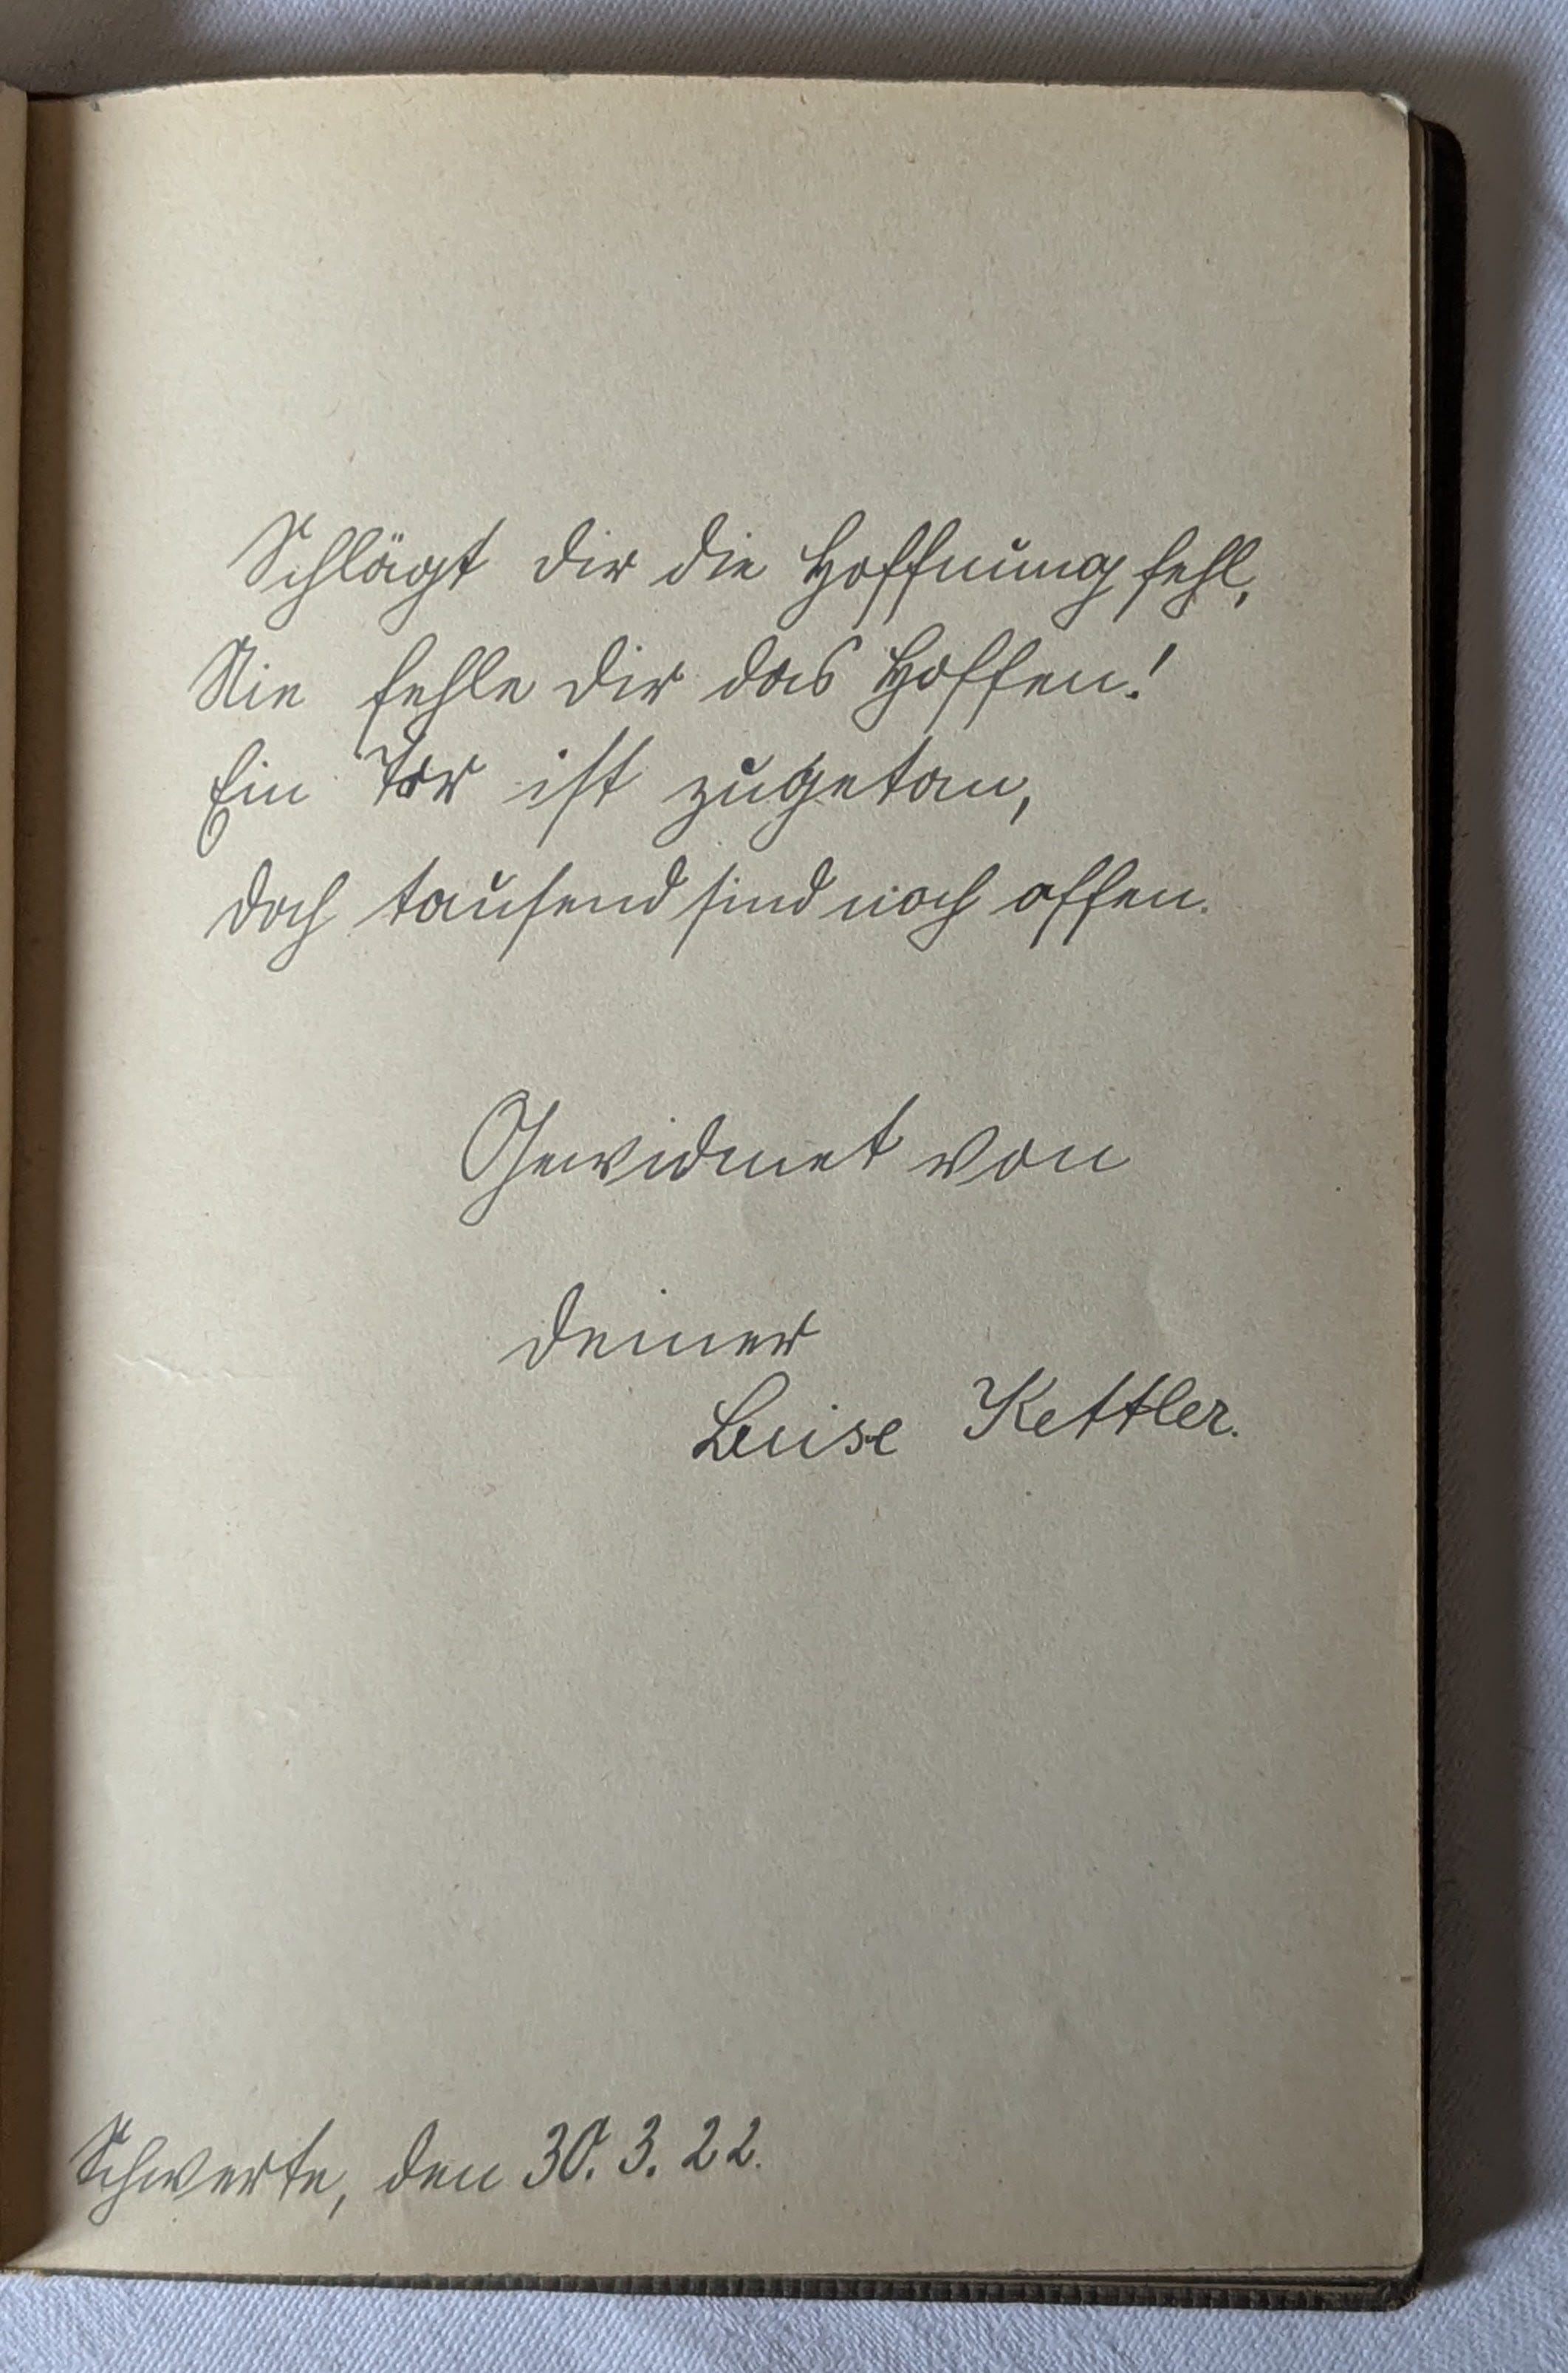 Schlägt dir die Hoffnung fehl,
Nie fehle dir das Hoffen!
Ein Tor ist zugetan,
doch tausend sind noch offen.
Gewidmet von
deiner
Luise Kettler.
Schwerte, den 30. 3. 22.